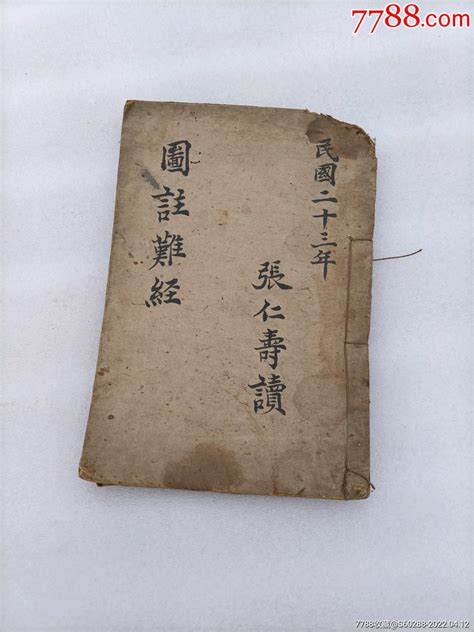 7788.com
民國二十三年
張仁壽讀
圖註難経
7788收藏@S60288-2022.04.12